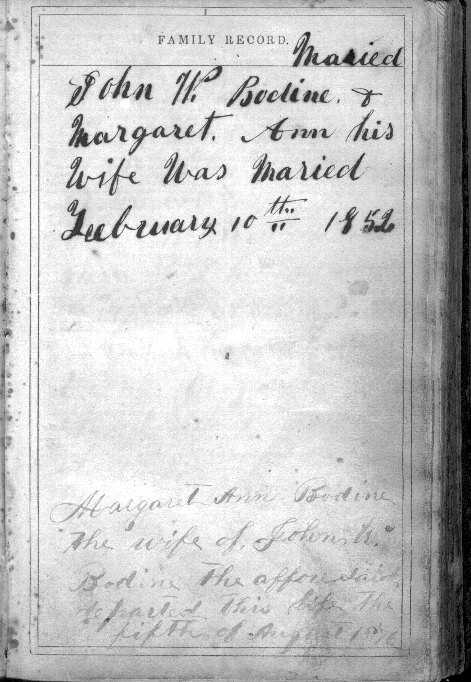 FAMILY RECORD.
Maried
John W. Bodine. &
Margaret. Ann his
Wife Was Maried
Feebruary 10th 1852
Margaret Ann Bodine
the wife of John W.
Bodine the affore said
departed this life the
fifth of August